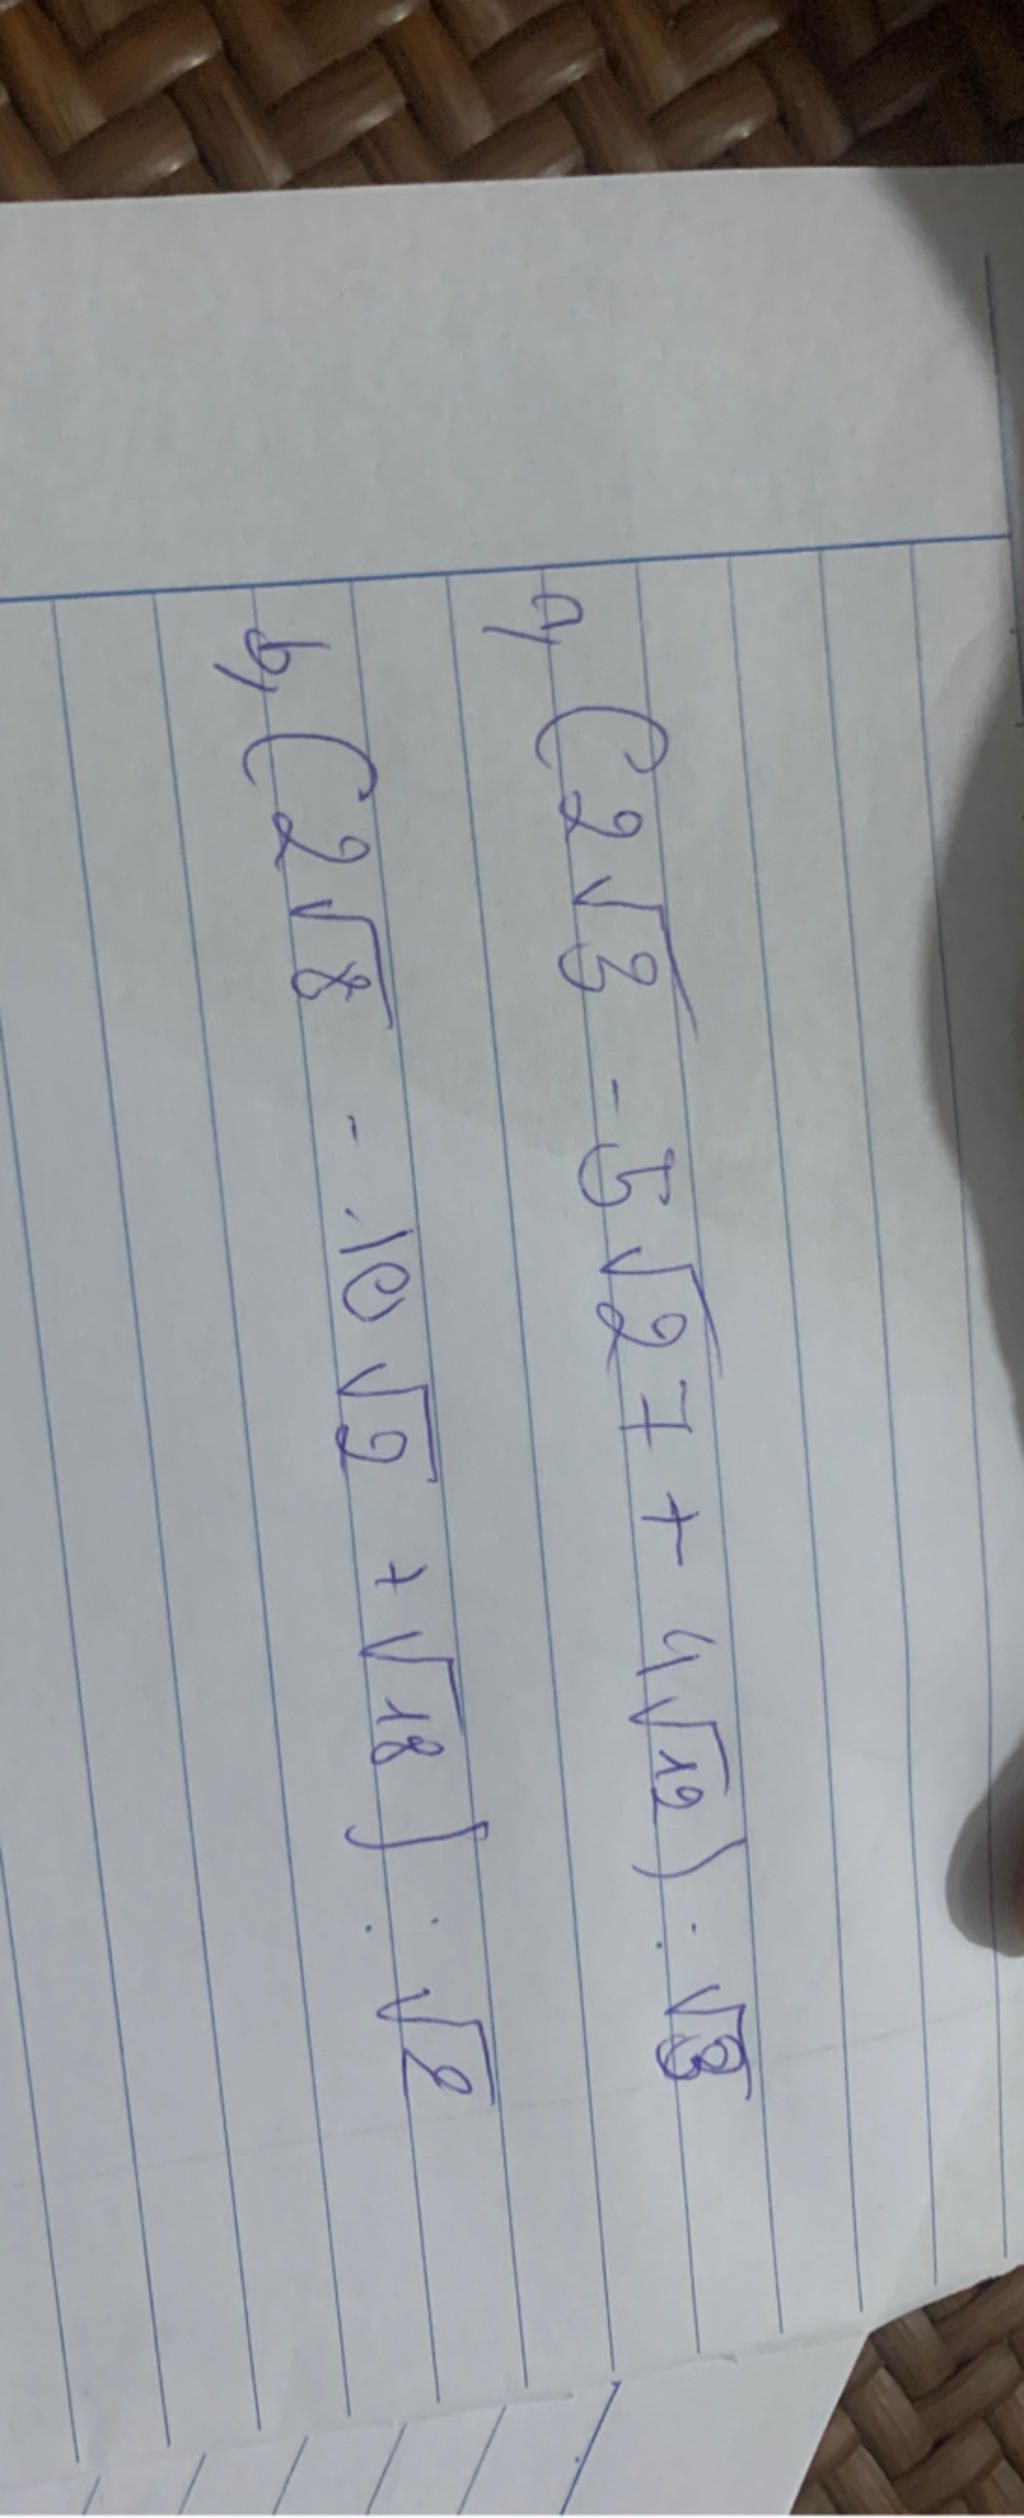 a, (2√3 - 5√27 + 4√12) : √3
b, (2√8 - 10√2 + √18) : √2